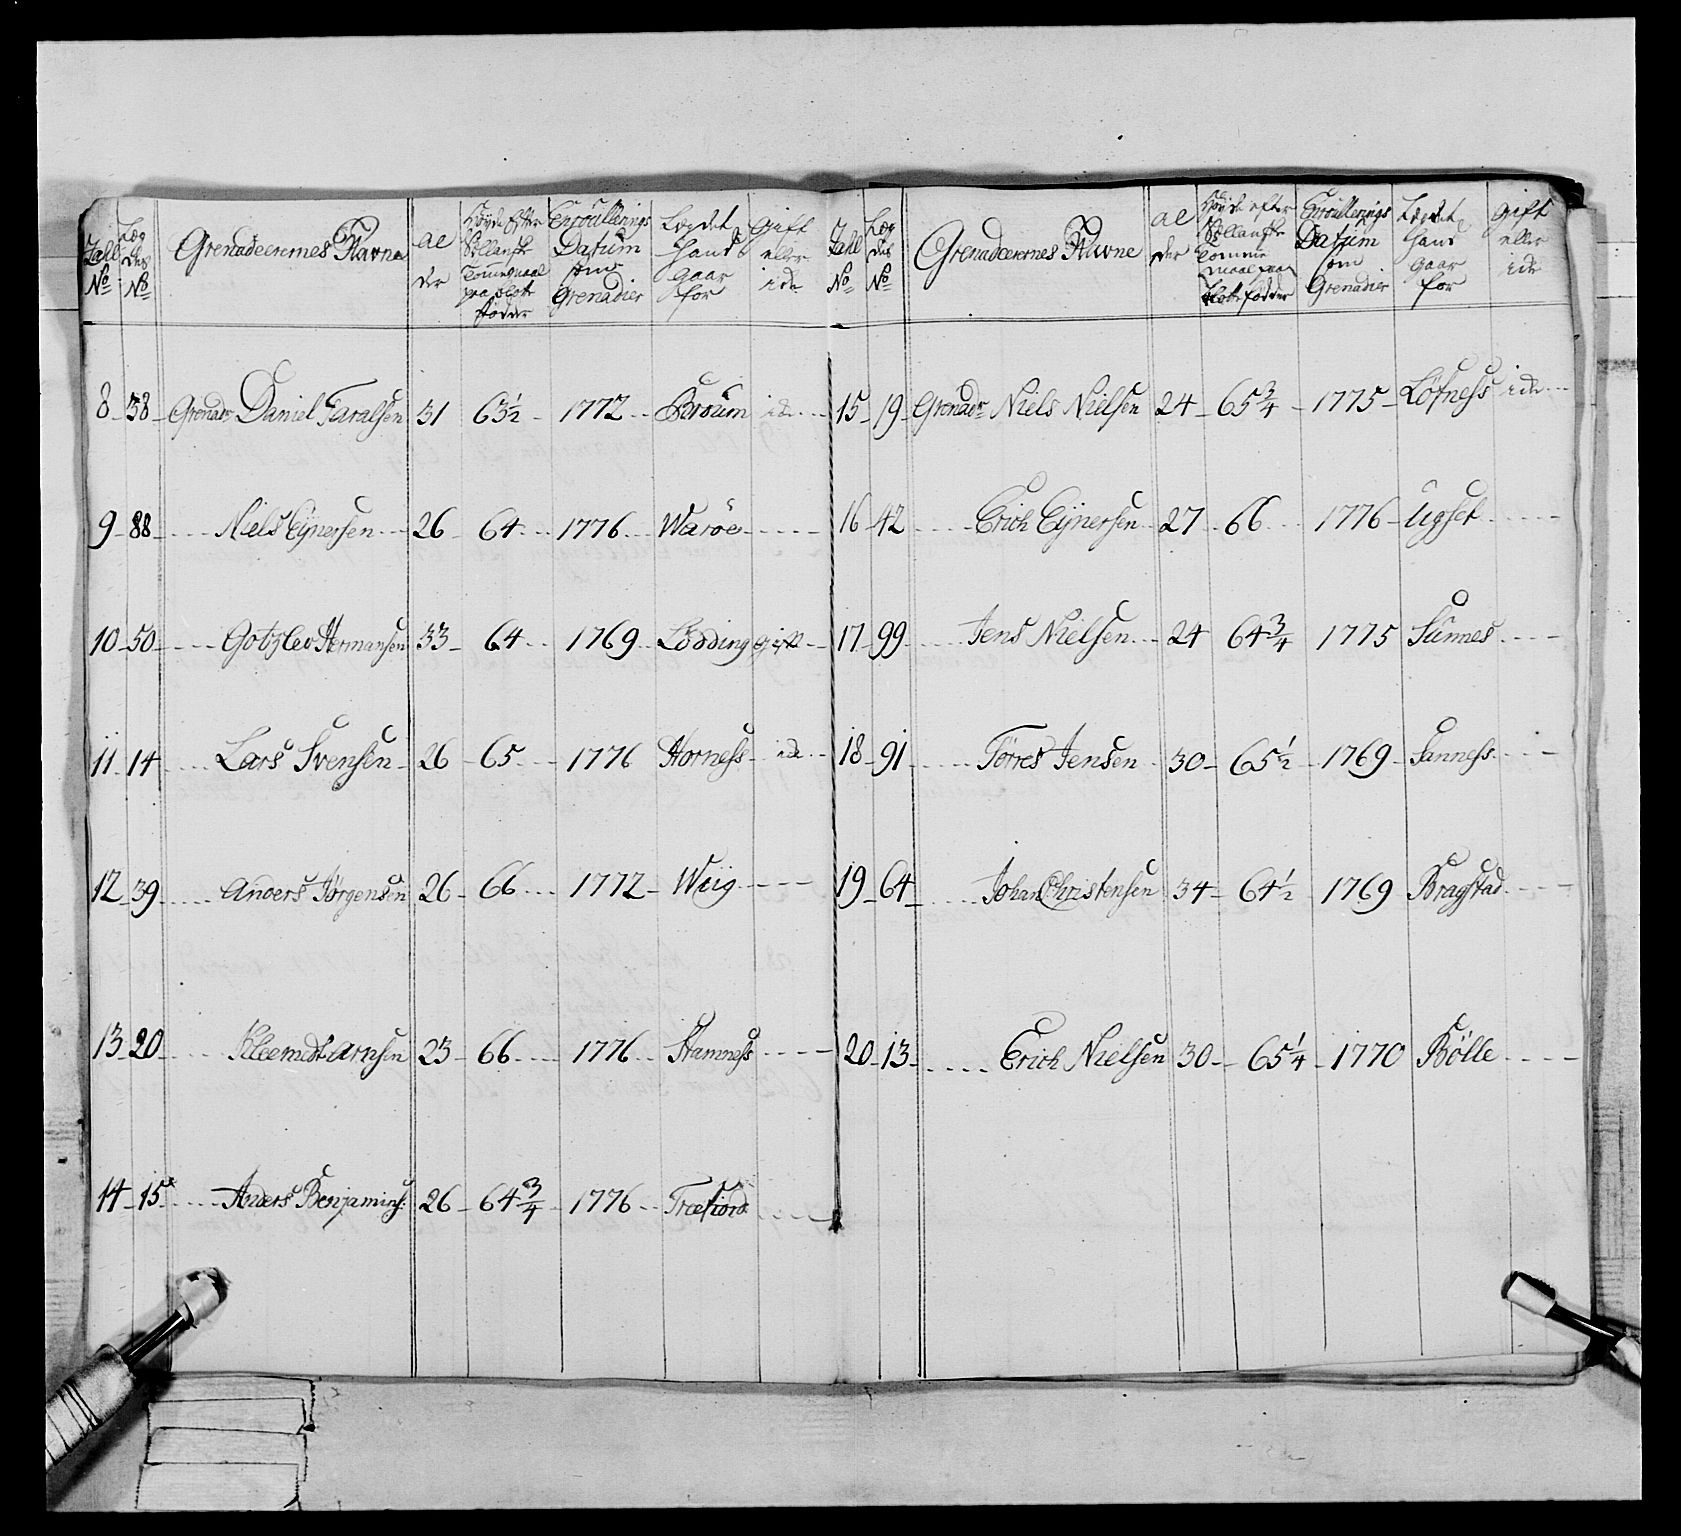 Tall No Læg des No Grenadeerernes Navne al der Höyde efter Hollansk Tommemaal paa blotte fødder Enroullerings Datum som Grenadier Lægdet hand gaar for Gift eller ide
8 38 Grenadr Daniel Taralsen 31 63½ 1772 Broum ide
9 88 Niels Eijnersen 26 64 1776 Waröe
10 50 Gotzlev Hermansen 33 64 1769 Lödding gift
11 14 Lars Svensen 26 65 1776 Horness ide
12 39 Anders Jörgensen 26 66 1772 Wiig
13 20 Kleemedt Arnsen 23 66 1776 Stamness
14 15 Anders Benjamins: 26 64¾ 1776 Træfiord
Tall No Læg des No Grenadeerernes Navne al der Höyde efter Hollanske Tomme maal paa blotte fødder Enroullerings Datum som Grenadier Lægdet hand gaar for gift eller ide
15 19 Grenadr Niels Nielsen 24 65¾ 1775 Löfness ide
16 42 Erich Eijnersen 27 66 1776 Ugset
17 99 Jens Nielsen 24 64¾ 1775 Sunnes
18 91 Törres Jensen 30 65½ 1769 Sanness
19 64 Johan Christensen 34 64½ 1769 Bragstad
20 13 Erich Nielsen 30 65¼ 1770 Bölle